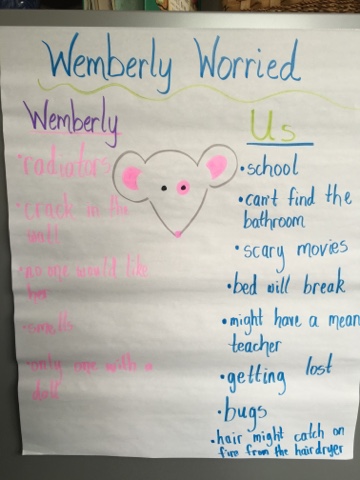 Wemberly Worried
Wemberly
• radiators
• crack in the
wall
• no one would like
her
• smells
• only one with a
doll
Us
• school
• can't find the
bathroom
• scary movies
• bed will break
• might have a mean
teacher
• getting lost
• bugs
• hair might catch on
fire from the hairdryer